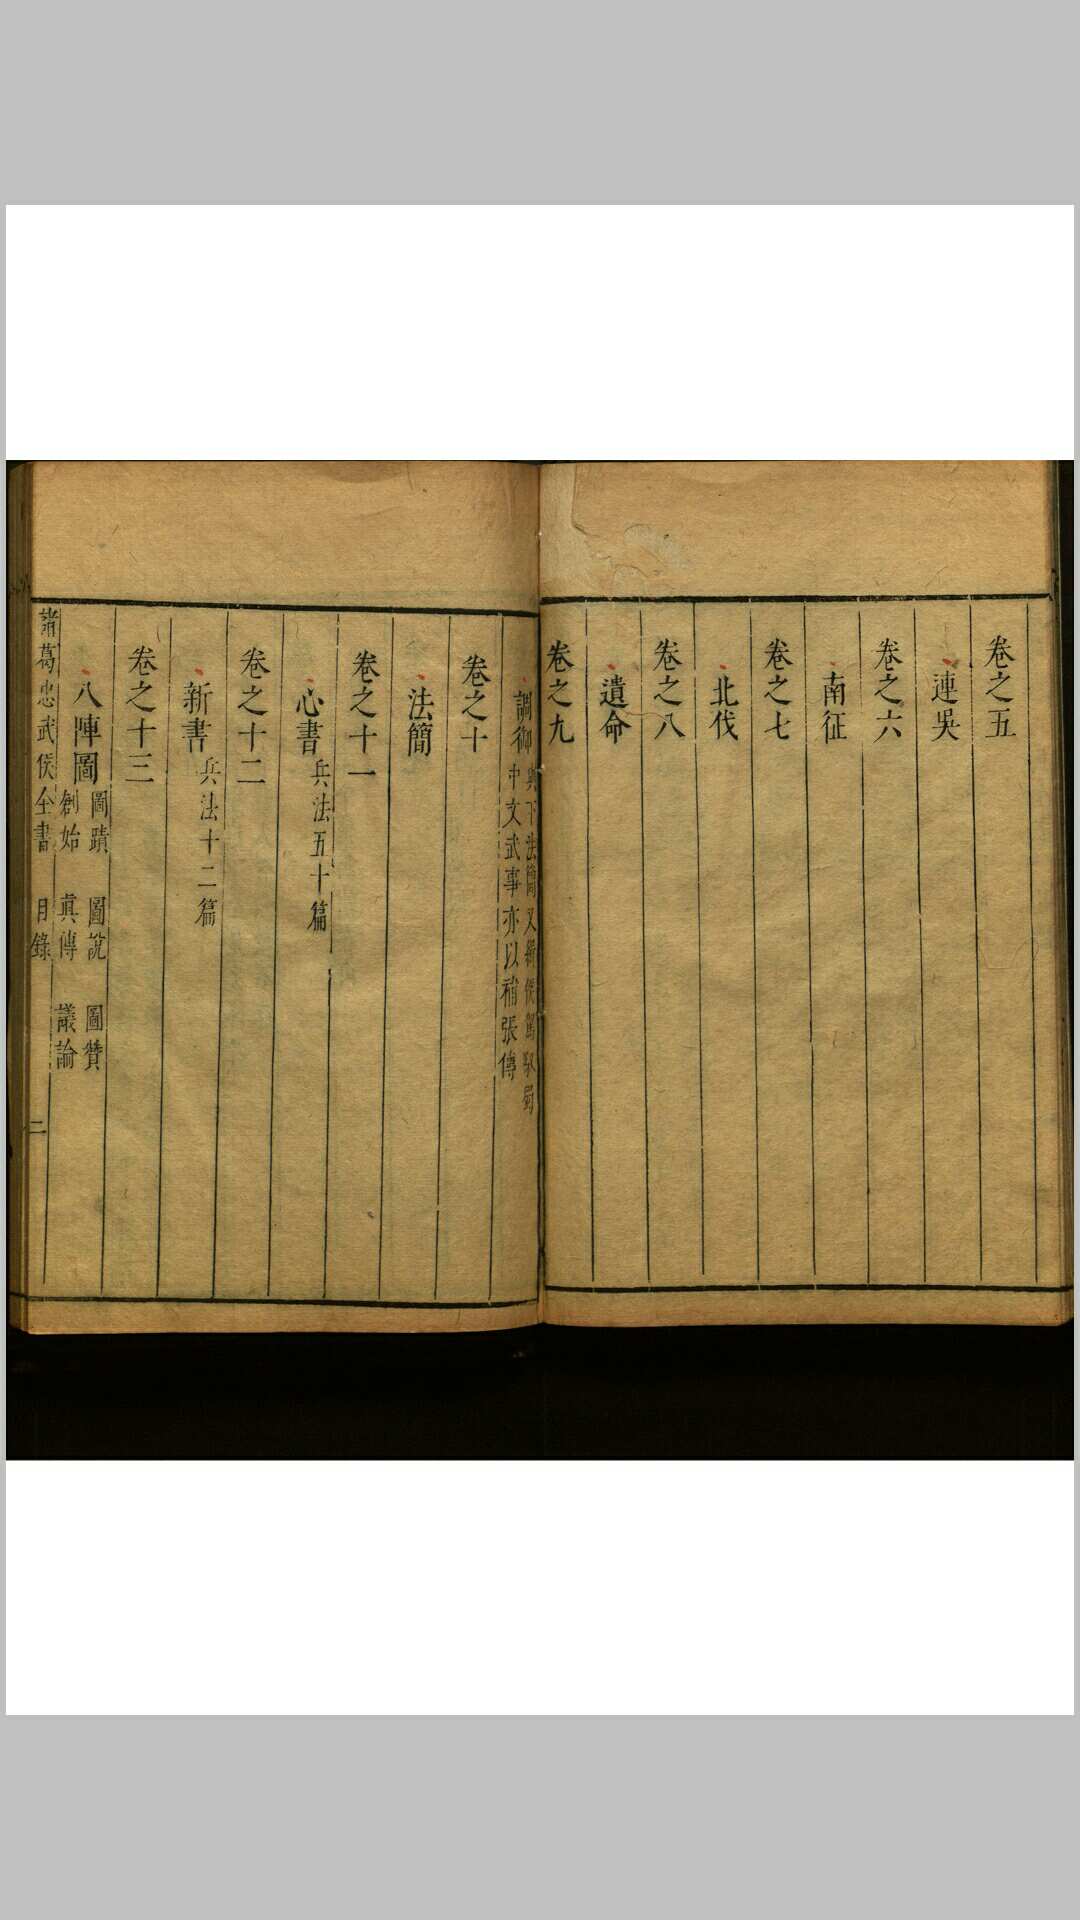 卷之五
連吳
卷之六
南征
卷之七
北伐
卷之八
遺命
卷之九
調御 與下法簡又緝侯駕馭局
中文武事亦以補張傳
卷之十
法簡
卷之十一
心書 兵法五十篇
卷之十二
新書 兵法十二篇
卷之十三
八陣圖 圖蹟 圖說 圖贊
創始 真傳 議論
諸葛忠武侯全書 目錄 二